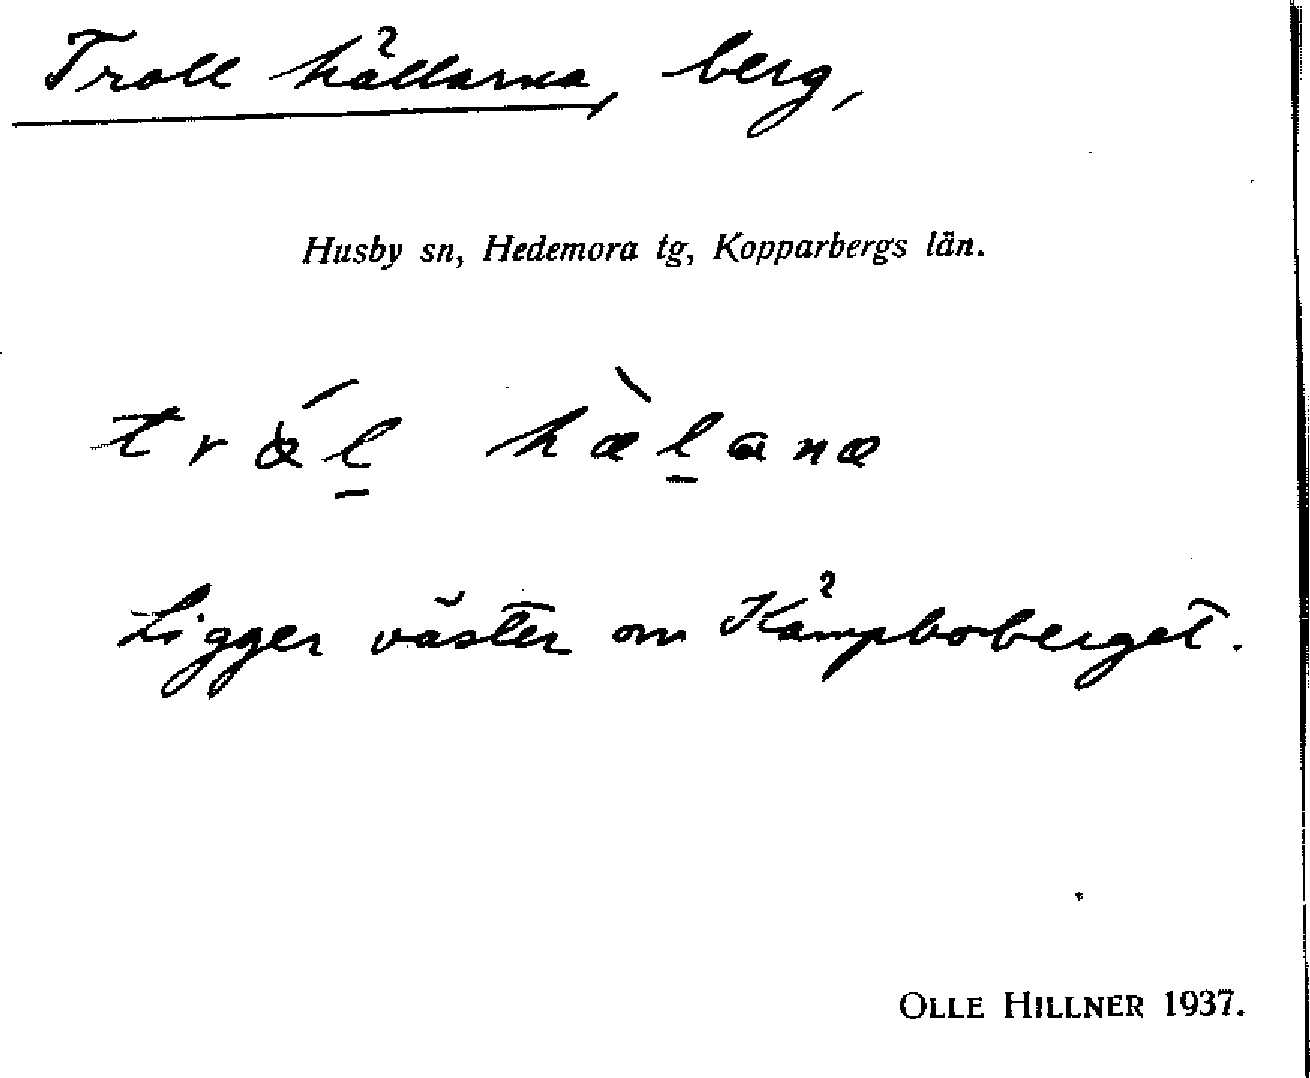 Troll hällarna, berg,
Husby sn, Hedemora tg, Kopparbergs län.
Ligger väster om Kämpboberget.
OLLE HILLNER 1937.